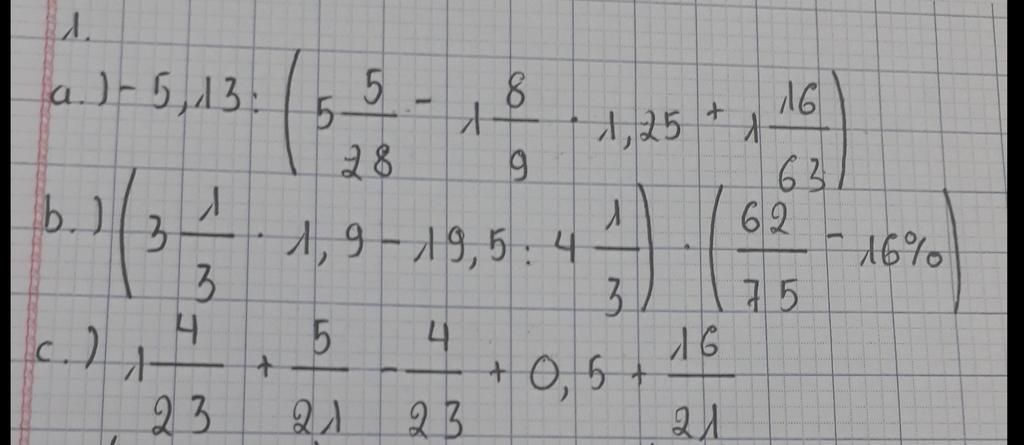 1.
a.) - 5,13 : (5 5/28 - 1 8/9 · 1,25 + 1 16/63)
b.) (3 1/3 · 1,9 - 19,5 : 4 1/3) · (62/75 - 16%)
c.) 1 4/23 + 5/21 - 4/23 + 0,5 + 16/21